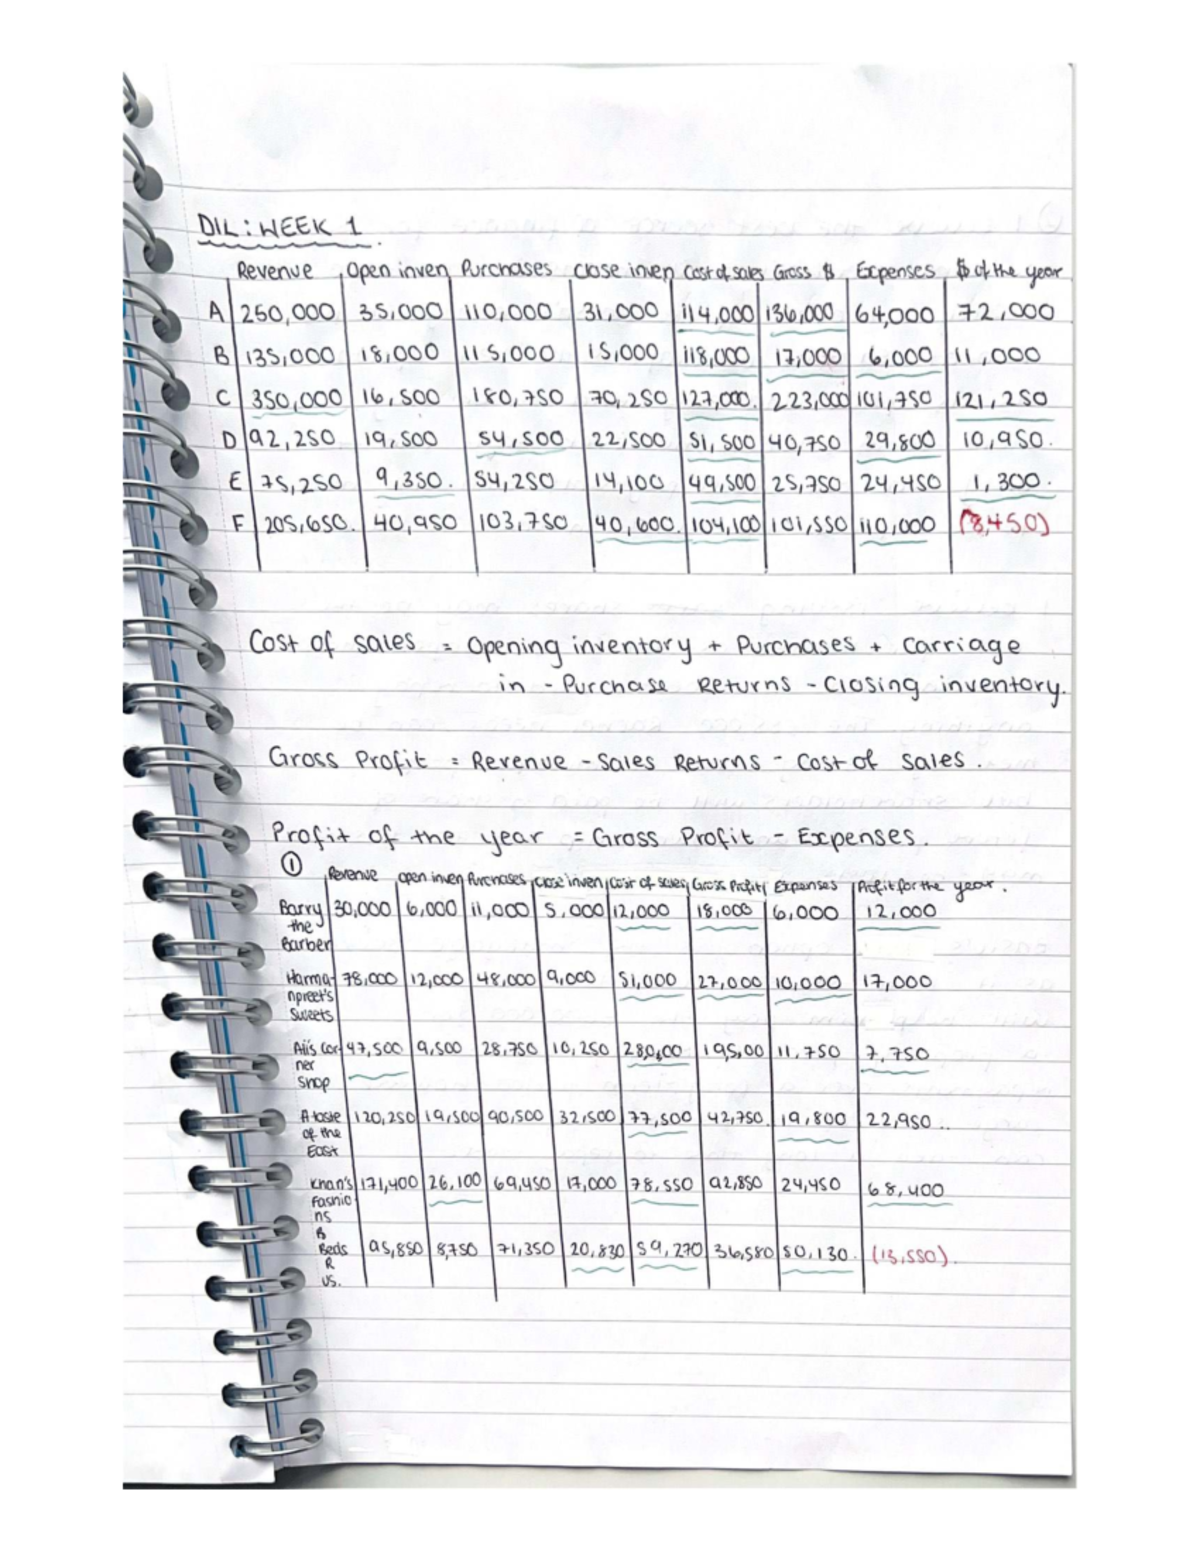 DIL : WEEK 1.
Revenue Open inven Purchases Close inven Cost of sales Gross $ Expenses $ of the year
A 250,000 35,000 110,000 31,000 114,000 136,000 64,000 72,000
B 135,000 18,000 115,000 15,000 118,000 17,000 6,000 11,000
C 350,000 16,500 180,750 70,250 127,000. 223,000 101,750 121,250
D 92,250 19,500 54,500 22,500 51,500 40,750 29,800 10,950.
E 75,250 9,350. 54,250 14,100 49,500 25,750 24,450 1,300.
F 205,650. 40,950 103,750 40,600. 104,100 101,550 110,000 (8,450)
Cost of sales = Opening inventory + Purchases + Carriage
in - Purchase Returns - Closing inventory.
Gross Profit = Revenue - Sales Returns - Cost of Sales.
Profit of the year = Gross Profit - Expenses.
①
Revenue open inven Purchases close inven Cost of sales Gross Profit Expenses Profit for the year.
Barry 30,000 6,000 11,000 5,000 12,000 18,000 6,000 12,000
the
Barber
Harma- 78,000 12,000 48,000 9,000 51,000 27,000 10,000 17,000
npreet's
Sweets
Ali's Cor- 47,500 9,500 28,750 10,250 280,00 195,00 11,750 7,750
ner
Shop
A taste 120,250 19,500 90,500 32,500 77,500 42,750. 19,800 22,950..
of the
East
Khan's 171,400 26,100 69,450 17,000 78,550 92,850 24,450 68,400
Fashio
ns
B
Beds 95,850 8,750 71,350 20,830 59,270 36,580 50,130. (13,550).
R
US.